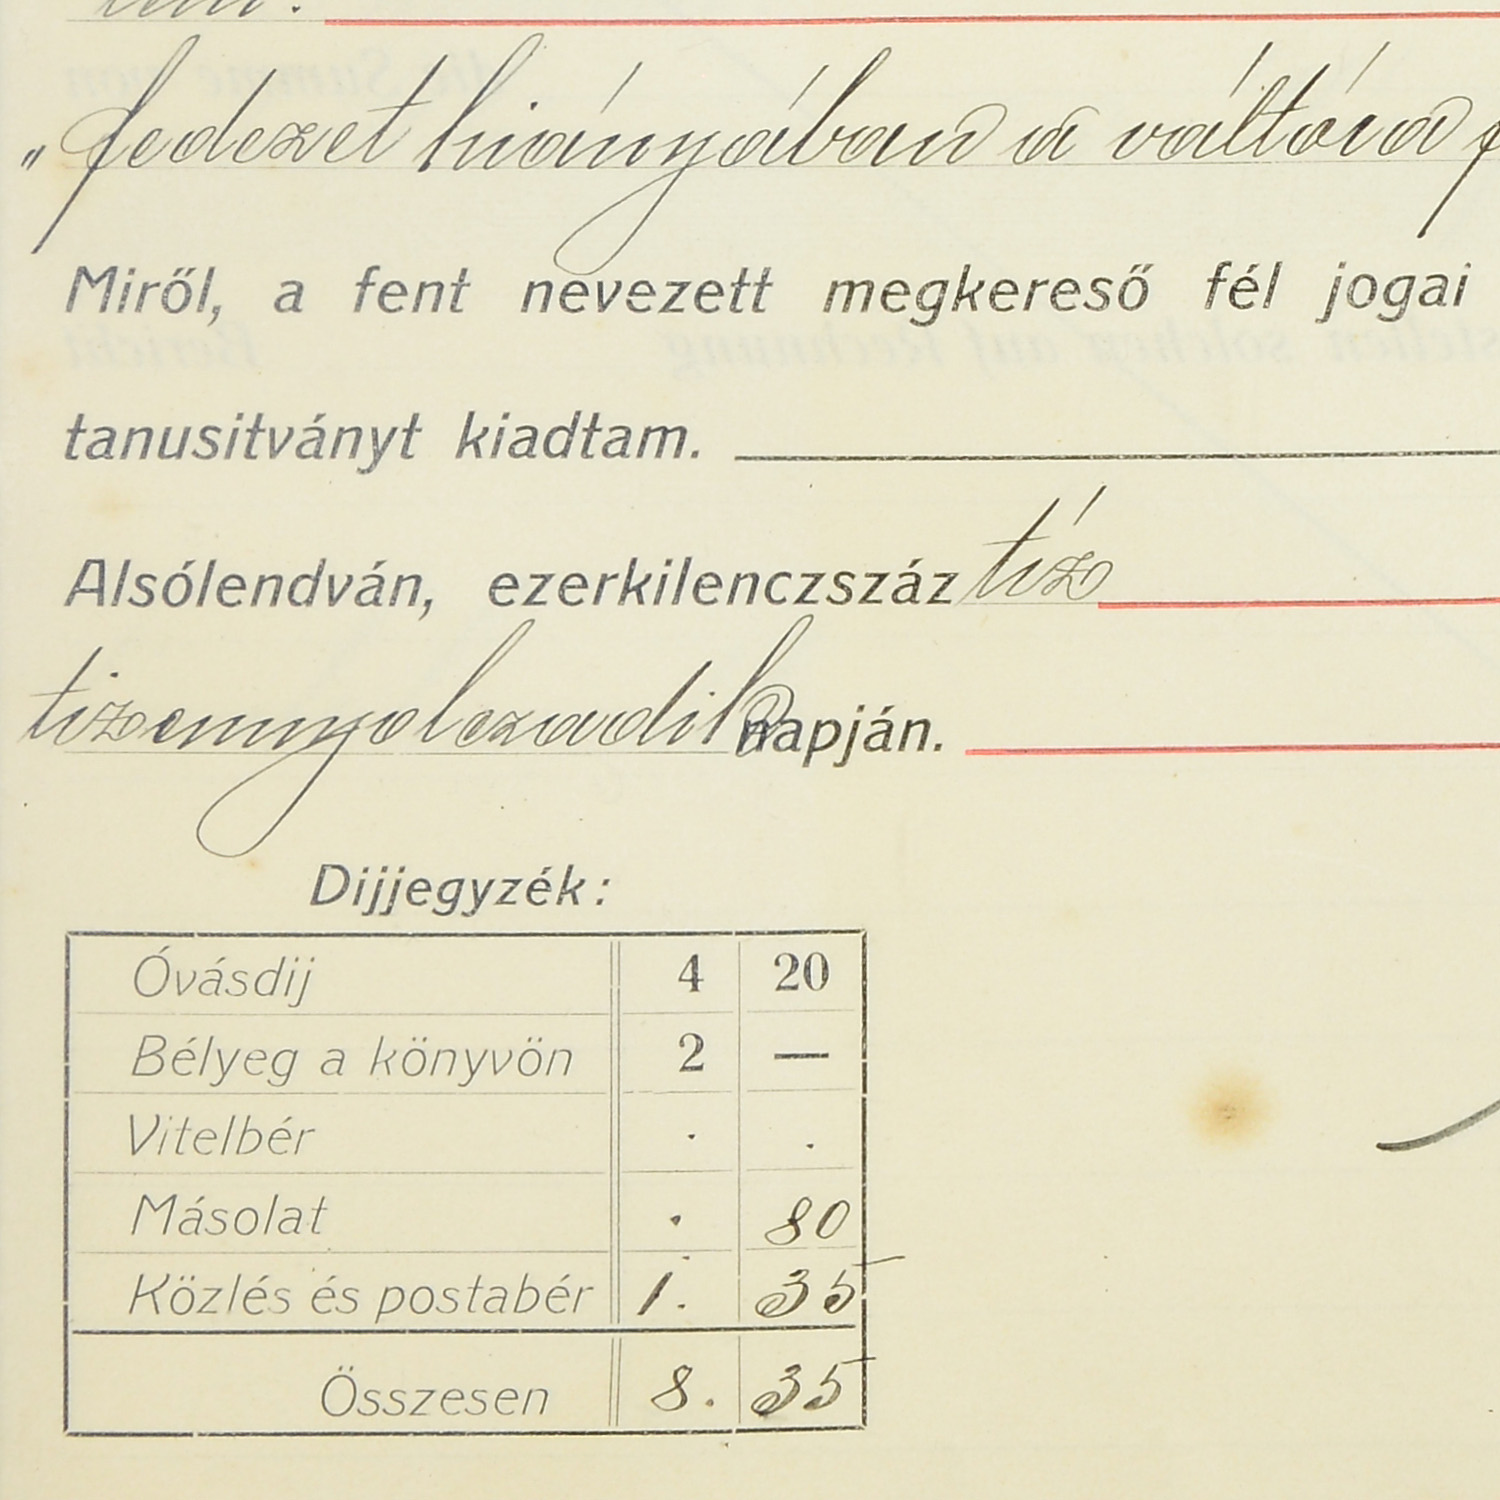 „fedezet hiányában a váltóra
Miről, a fent nevezett megkereső fél jogai
tanusitványt kiadtam.
Alsólendván, ezerkilenczszáz tíz
tizennyolczadik napján.
Dijjegyzék:
Óvásdij 4 20
Bélyeg a könyvön 2 —
Vitelbér . .
Másolat . 80
Közlés és postabér 1. 35
Összesen 8. 35